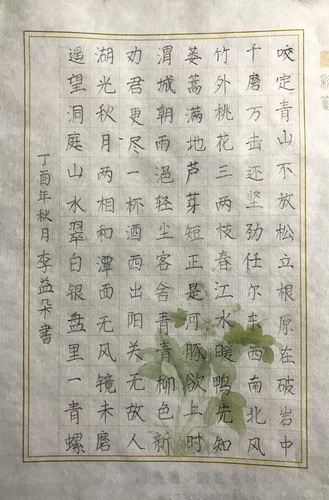 咬定青山不放松立根原在破岩中
千磨万击还坚劲任尔东西南北风
竹外桃花三两枝春江水暖鸭先知
蒌蒿满地芦芽短正是河豚欲上时
渭城朝雨浥轻尘客舍青青柳色新
劝君更尽一杯酒西出阳关无故人
湖光秋月两相和潭面无风镜未磨
遥望洞庭山水翠白银盘里一青螺
丁酉年秋月李益朵书